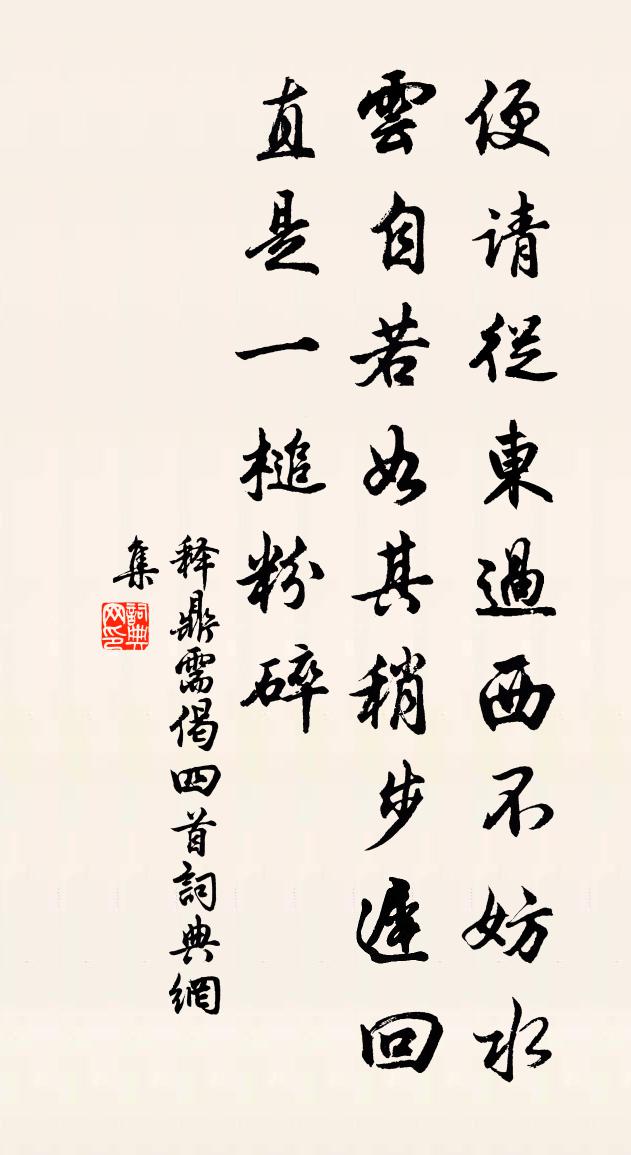 便请從東過西不妨水
雲自若如其稍步遲回
直是一槌粉碎
释鼎需偈四首詞典網
集
詞典網印